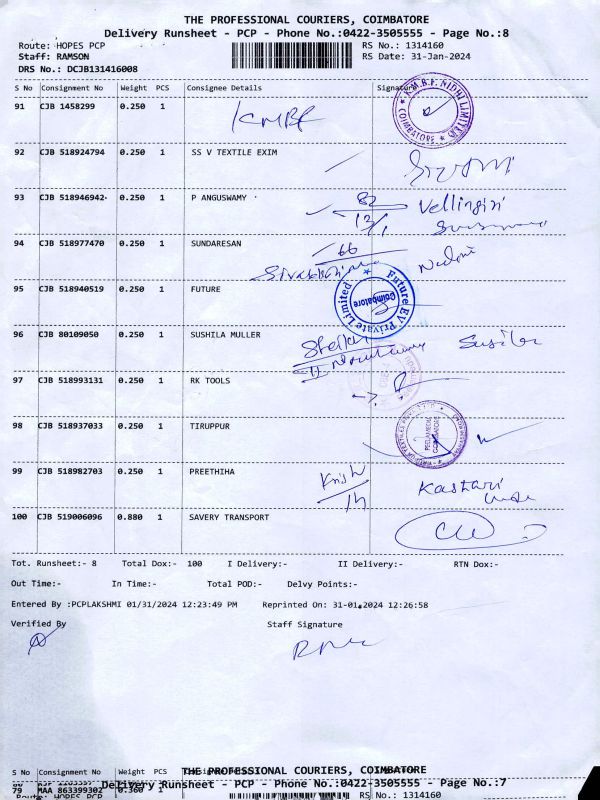 THE PROFESSIONAL COURIERS, COIMBATORE
Delivery Runsheet - PCP - Phone No.:0422-3505555 - Page No.:8
Route: HOPES PCP RS No.: 1314160
Staff: RAMSON RS Date: 31-Jan-2024
DRS No.: DCJB131416008
S No Consignment No Weight PCS Consignee Details Signature
91 CJB 1458299 0.250 1 KMBF
K.M.B.F. NIDHI LIMITED COIMBATORE
92 CJB 518924794 0.250 1 SS V TEXTILE EXIM
93 CJB 518946942 0.250 1 P ANGUSWAMY 82 Vellingiri
13/1
94 CJB 518977470 0.250 1 SUNDARESAN 66
95 CJB 518940519 0.250 1 FUTURE
Future EV Private Limited Coimbatore
96 CJB 80109050 0.250 1 SUSHILA MULLER
97 CJB 518993131 0.250 1 RK TOOLS
98 CJB 518937033 0.250 1 TIRUPPUR
PEELAMEDU COIMBATORE
99 CJB 518982703 0.250 1 PREETHIHA Krish Kasthuri
100 CJB 519006096 0.880 1 SAVERY TRANSPORT
Tot. Runsheet:- 8 Total Dox:- 100 I Delivery:- II Delivery:- RTN Dox:-
Out Time:- In Time:- Total POD:- Delvy Points:-
Entered By :PCPLAKSHMI 01/31/2024 12:23:49 PM Reprinted On: 31-01-2024 12:26:58
Verified By Staff Signature
THE PROFESSIONAL COURIERS, COIMBATORE
S No Consignment No Weight PCS
Delivery Runsheet - PCP - Phone No.:0422-3505555 - Page No.:7
79 MAA 863399302 0.360 1
Route: HOPES PCP RS No.: 1314160